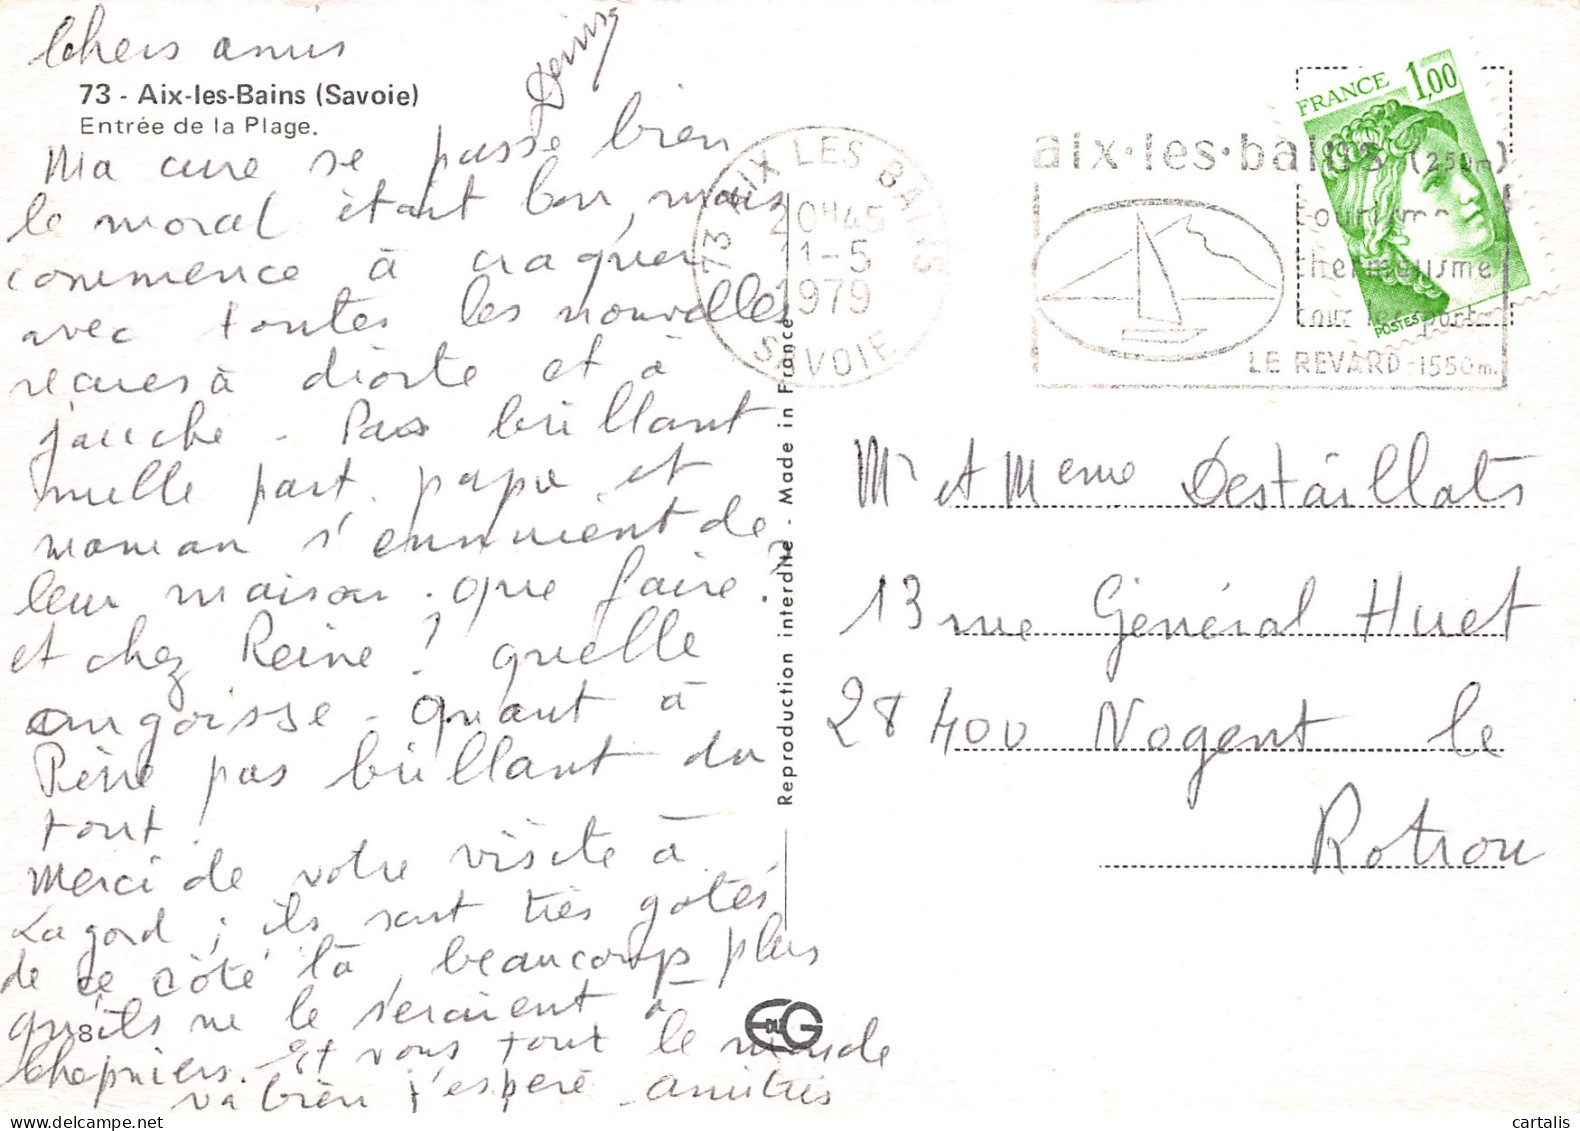 Chers amis
73 - Aix-les-Bains (Savoie)
Entrée de la Plage.
Ma cure se passe bien
le moral était bon, mais
commence à craquer
avec toutes les nouvelles
reçues à driorte et à
gauche - Pas brillant
nulle part. papa et
maman s'ennuient de
leur maison. que faire ?
et chez Reine ? quelle
angoisse - quant à
Pierre pas brillant du
tout !
Merci de votre visite à
Lagord ; ils sont très gâtés
de ce côté là, beaucoup plus
qu'ils ne le seraient à
Chepniers. Et vous tout le monde
va bien j'espère - amitiés
Denise
8
73 AIX LES BAINS
20H45
11-5
1979
SAVOIE
aix·les·bains (250m)
tourisme
thermalisme
tous les sports
LE REVARD-1550m.
FRANCE 1,00
POSTES
Reproduction interdite - Made in France
Mr et Meme Destaillats
13 rue Général Huet
28400 Nogent le
Rotrou
EDUG
www.delcampe.net
cartalis